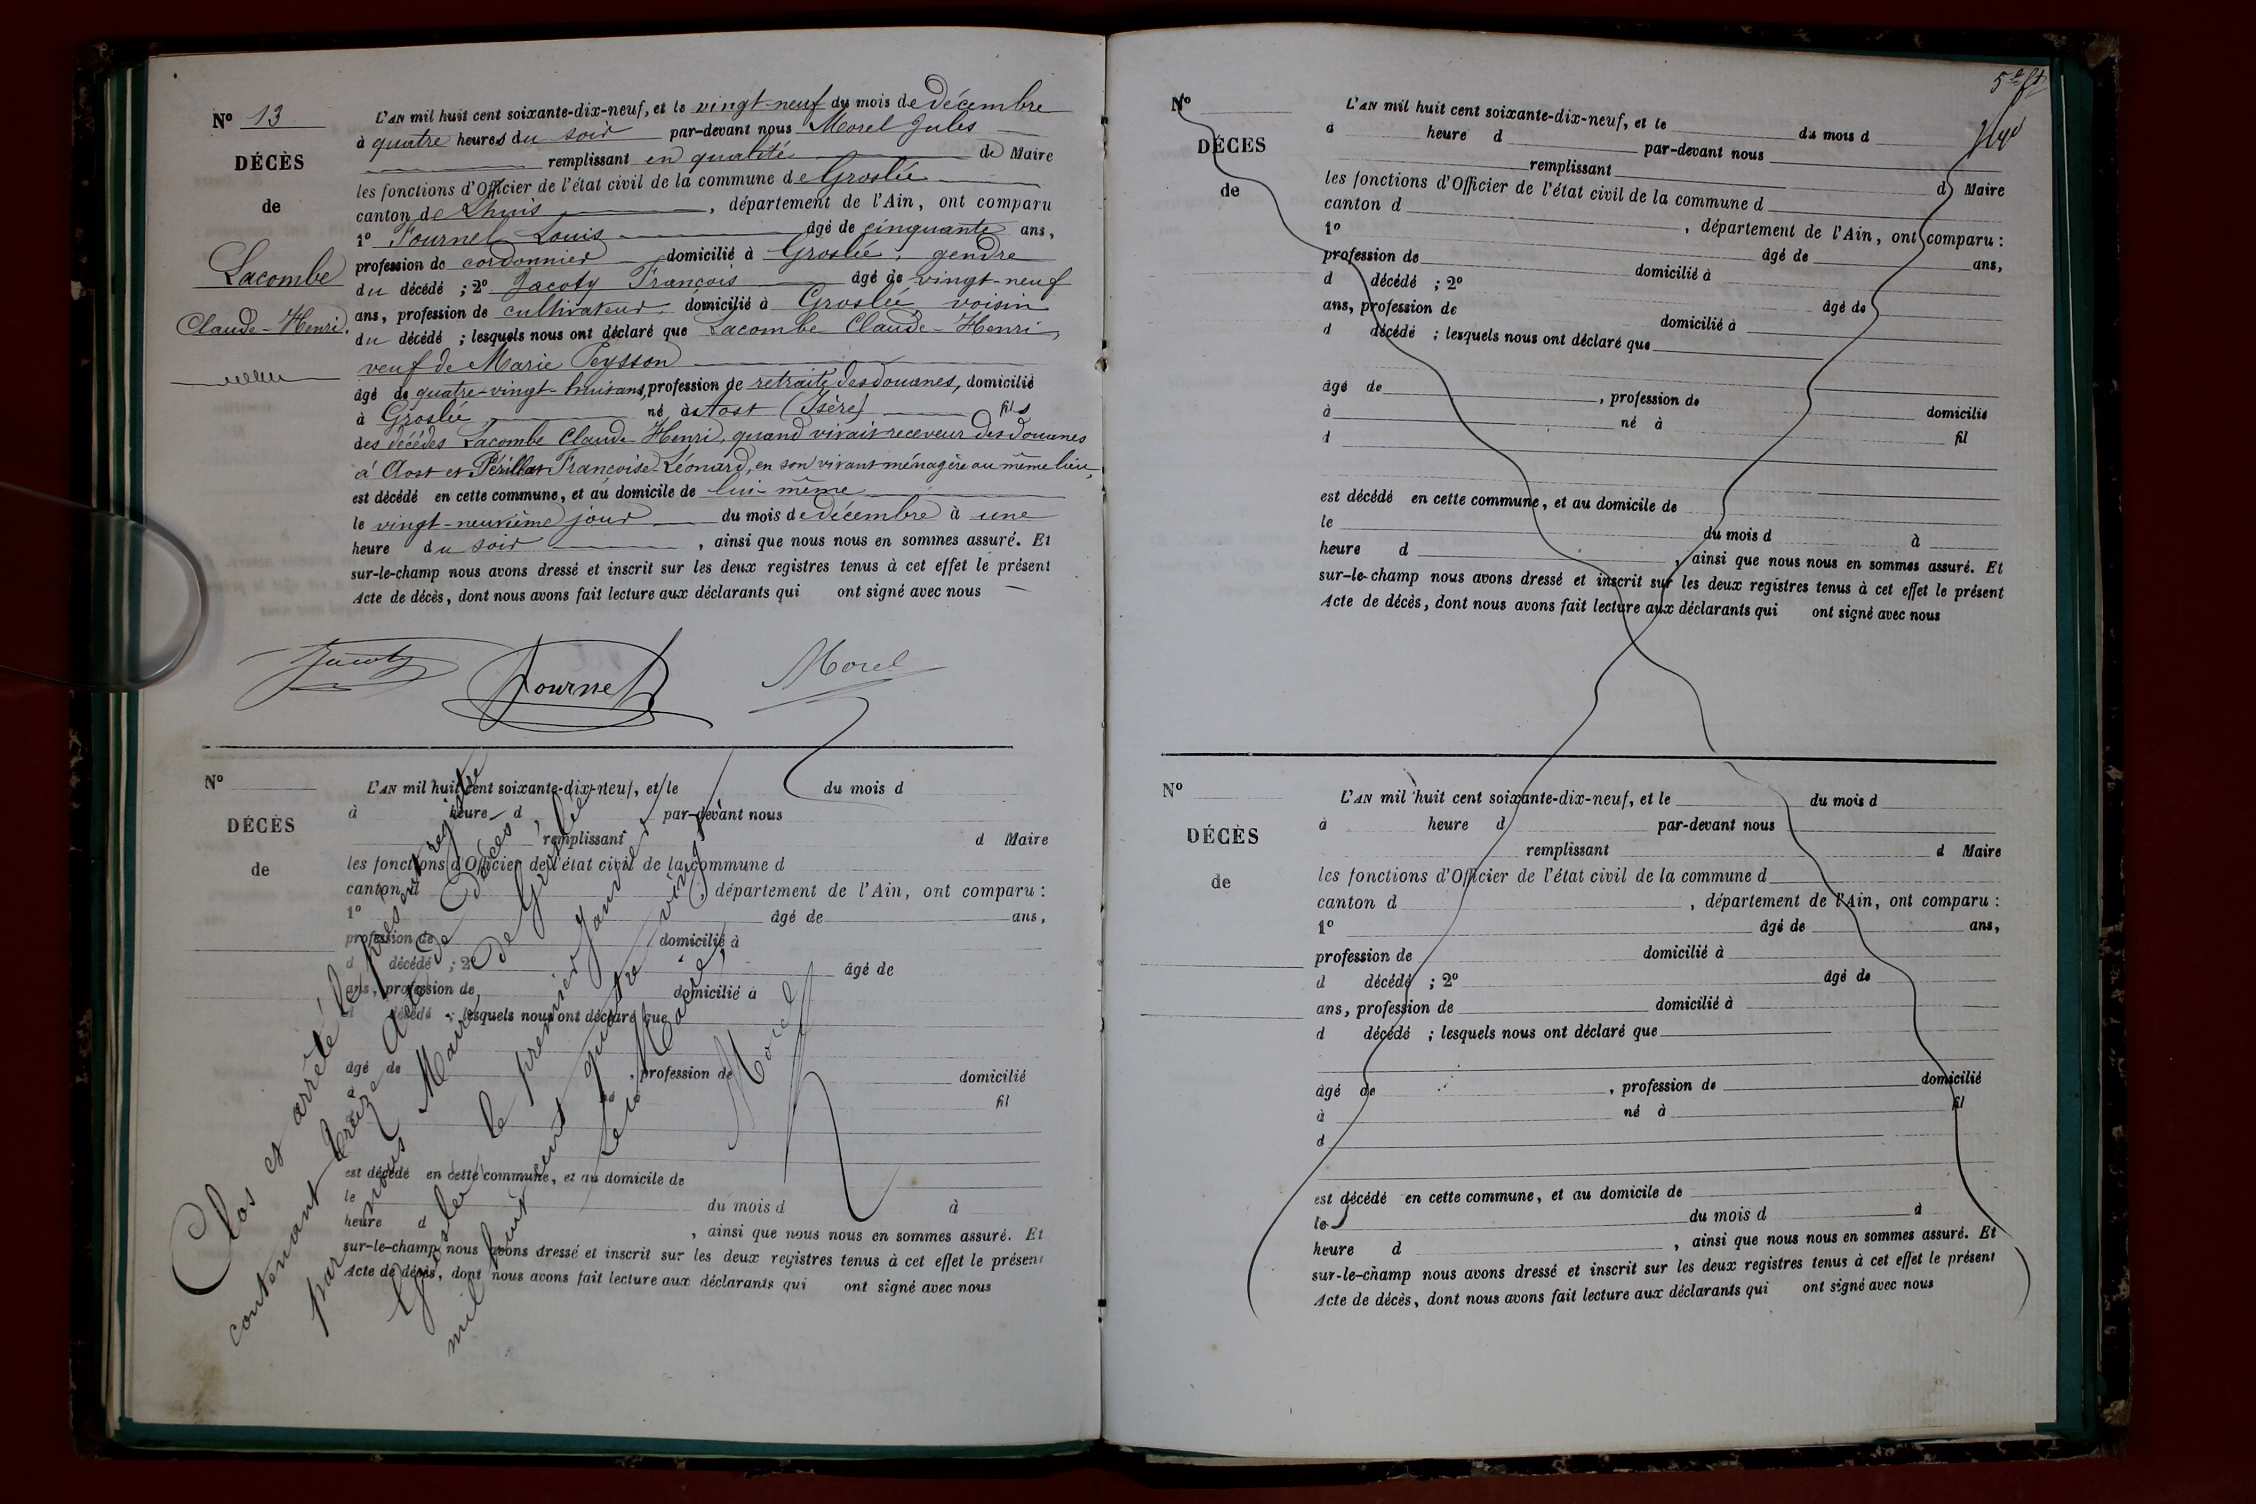 Nº 13
DÉCÈS
de
Lacombe
Claude-Henri.
L'AN mil huit cent soixante-dix-neuf, et le vingt-neuf du mois de décembre
à quatre heures du soir par-devant nous Morel Jules
remplissant en qualité de Maire
les fonctions d'Officier de l'état civil de la commune de Groslée
canton de Lhuis, département de l'Ain, ont comparu
1º Fournel Louis âgé de cinquante ans,
profession de cordonnier domicilié à Groslée, gendre
du décédé ; 2º Jacoty François âgé de vingt-neuf
ans, profession de cultivateur, domicilié à Groslée voisin
du décédé ; lesquels nous ont déclaré que Lacombe Claude-Henri,
veuf de Marie Peysson
âgé de quatre-vingt-huit ans, profession de retraité des douanes, domicilié
à Groslée né à Aost (Isère) fils
des décédés Lacombe Claude Henri, quand vivait receveur des douanes
à Aost et Périllat Françoise Léonard, en son vivant ménagère au même lieu,
est décédé en cette commune, et au domicile de lui-même
le vingt-neuvième jour du mois de décembre à une
heure du soir, ainsi que nous nous en sommes assuré. Et
sur-le-champ nous avons dressé et inscrit sur les deux registres tenus à cet effet le présent
Acte de décès, dont nous avons fait lecture aux déclarants qui ont signé avec nous
Jacoty Fournel Morel
Nº
DÉCÈS
de
L'AN mil huit cent soixante-dix-neuf, et le du mois d
à heure d par-devant nous
remplissant d Maire
les fonctions d'Officier de l'état civil de la commune d
canton d, département de l'Ain, ont comparu :
1º âgé de ans,
profession de domicilié à
d décédé ; 2º âgé de
ans, profession de domicilié à
d décédé ; lesquels nous ont déclaré que
âgé de, profession de domicilié
à fil
est décédé en cette commune, et au domicile de
le du mois d à
heure d, ainsi que nous nous en sommes assuré. Et
sur-le-champ nous avons dressé et inscrit sur les deux registres tenus à cet effet le présent
Acte de décès, dont nous avons fait lecture aux déclarants qui ont signé avec nous
Clos et arrêté le présent registre
contenant treize actes de décès
par nous Maire de Groslée
Groslée le premier janvier
mil huit cent quatre vingt.
Le Maire,
Morel
5e ft
Nº
DÉCÈS
de
L'AN mil huit cent soixante-dix-neuf, et le du mois d
à heure d par-devant nous
remplissant d Maire
les fonctions d'Officier de l'état civil de la commune d
canton d, département de l'Ain, ont comparu :
1º âgé de ans,
profession de domicilié à
d décédé ; 2º âgé de
ans, profession de domicilié à
d décédé ; lesquels nous ont déclaré que
âgé de, profession de domicilié
à né à fil
d
est décédé en cette commune, et au domicile de
le du mois d à
heure d, ainsi que nous nous en sommes assuré. Et
sur-le-champ nous avons dressé et inscrit sur les deux registres tenus à cet effet le présent
Acte de décès, dont nous avons fait lecture aux déclarants qui ont signé avec nous
Nº
DÉCÈS
de
L'AN mil huit cent soixante-dix-neuf, et le du mois d
à heure d par-devant nous
remplissant d Maire
les fonctions d'Officier de l'état civil de la commune d
canton d, département de l'Ain, ont comparu :
1º âgé de ans,
profession de domicilié à
d décédé ; 2º âgé de
ans, profession de domicilié à
d décédé ; lesquels nous ont déclaré que
âgé de, profession de domicilié
à né à fil
d
est décédé en cette commune, et au domicile de
le du mois d à
heure d, ainsi que nous nous en sommes assuré. Et
sur-le-champ nous avons dressé et inscrit sur les deux registres tenus à cet effet le présent
Acte de décès, dont nous avons fait lecture aux déclarants qui ont signé avec nous